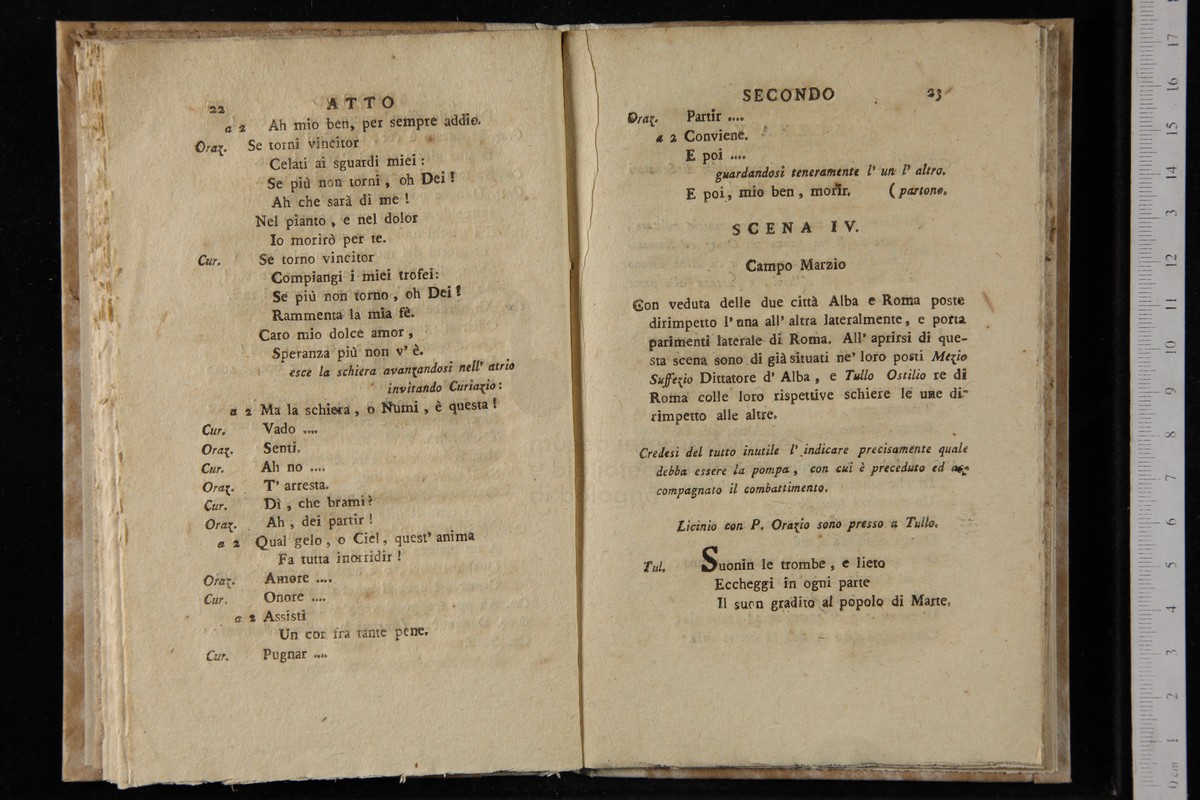 22 ATTO
a 2 Ah mio ben, per sempre addio.
Oraz. Se torni vincitor
Celati ai sguardi miei :
Se più non torni , oh Dei !
Ah che sarà di me !
Nel pianto , e nel dolor
Io morirò per te.
Cur. Se torno vincitor
Compiangi i miei trofei:
Se più non torno , oh Dei !
Rammenta la mia fè.
Caro mio dolce amor ,
Speranza più non v' è.
esce la schiera avanzandosi nell' atrio
invitando Curiazio:
a 2 Ma la schiera , o Numi , è questa !
Cur. Vado ....
Oraz. Senti.
Cur. Ah no ....
Oraz. T' arresta.
Cur. Dì , che brami ?
Oraz. Ah , dei partir !
a 2 Qual gelo , o Ciel , quest' anima
Fa tutta inorridir !
Oraz. Amore ....
Cur. Onore ....
a 2 Assisti
Un cor fra tante pene.
Cur. Pugnar ....
SECONDO 23
Oraz. Partir ....
a 2 Conviene.
E poi ....
guardandosi teneramente l' un l' altro.
E poi , mio ben , morir. ( partono.
SCENA IV.
Campo Marzio
Con veduta delle due città Alba e Roma poste
dirimpetto l' una all' altra lateralmente, e porta
parimenti laterale di Roma. All' aprirsi di que-
sta scena sono di già situati ne' loro posti Mezio
Suffezio Dittatore d' Alba , e Tullo Ostilio re di
Roma colle loro rispettive schiere le une di-
rimpetto alle altre.
Credesi del tutto inutile l' indicare precisamente quale
debba essere la pompa , con cui è preceduto ed ac-
compagnato il combattimento.
Licinio con P. Orazio sono presso a Tullo.
Tul. Suonin le trombe , e lieto
Eccheggi in ogni parte
Il suon gradito al popolo di Marte.
0 cm 1 2 3 4 5 6 7 8 9 10 11 12 13 14 15 16 17